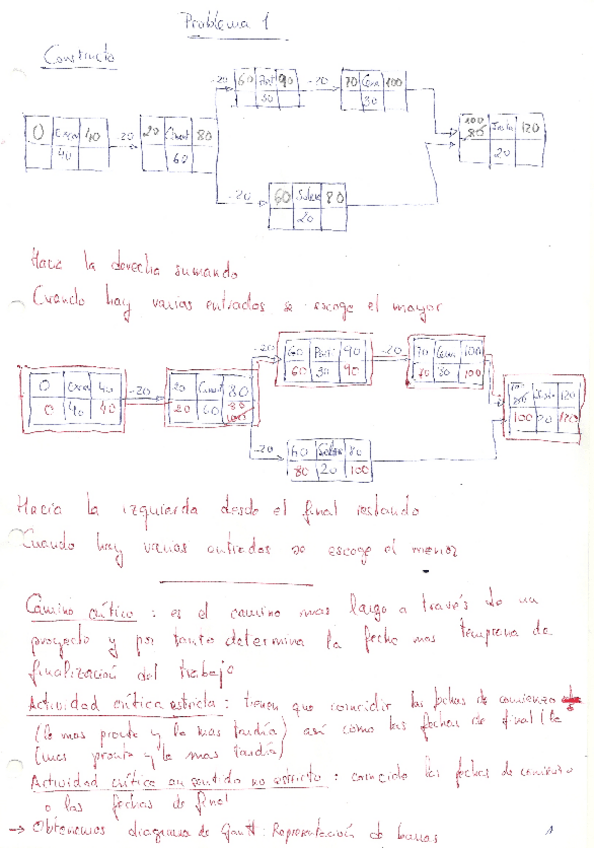 Problema 1
Constructo
-20 60 90 -20 70 100
0 40 -20 20 80 100 80 120
40 60 30 30 20
-20 60 80
20
Hacia la derecha sumando
Cuando hay varias entradas se escoge el mayor
-20 60 90 -20 70 100
0 40 -20 20 80 60 30 90 70 30 100 120
0 40 40 20 60 80 100 100 20 120
-20 60 80
80 20 100
Hacia la izquierda desde el final restando
Cuando hay varias entradas se escoge el menor
Camino crítico : es el camino mas largo a través de un
proyecto y por tanto determina la fecha mas temprana de
finalización del trabajo
Actividad crítica estricta : tienen que coincidir las fechas de comienzo
(la mas pronto y la mas tardía) así como las fechas de final (la
mas pronto y la mas tardía)
Actividad crítica en sentido no estricto : coincide las fechas de comienzo
o las fechas de final
→ Obtenemos diagrama de Gantt : Representación de barras
1